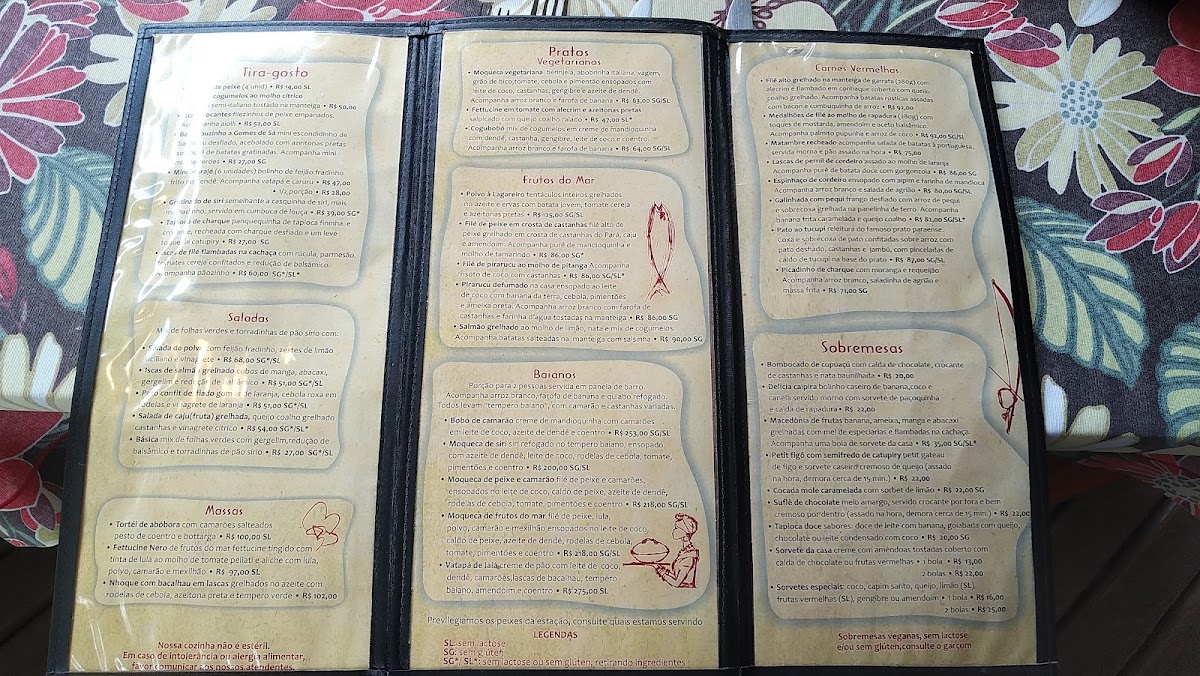 Tira-gosto
de peixe (4 unid) • R$ 14,00 SL
cogumelos ao molho cítrico
semi-italiano tostado na manteiga • R$ 50,00
crocantes filezinhos de peixe empanados.
Acompanha aioli • R$ 52,00 SL
a Gomes de Sá mini escondidinho de
desfiado, acebolado com azeitonas pretas
de batatas gratinadas. Acompanha mini
verdes • R$ 27,00 SG
Mini acarajé (6 unidades) bolinho de feijão fradinho
frito no dendê. Acompanha vatapá e caruru • R$ 47,00
1/2 porção • R$ 28,00
Gratinado de siri semelhante a casquinha de siri, mais
servido em cumbuca de louça • R$ 39,00 SG*
Tapioca de charque panquequinha de tapioca fininha e
crocante, recheada com charque desfiado e um leve
toque de catupiry • R$ 27,00 SG
Iscas de filé flambadas na cachaça com rúcula, parmesão,
tomates cereja confitados e redução de balsâmico.
Acompanha pãozinho • R$ 60,00 SG*/SL*
Saladas
Mix de folhas verdes e torradinhas de pão sírio com:
• Salada de polvo com feijão fradinho, zestes de limão
siciliano e vinagrete • R$ 68,00 SG*/SL
• Iscas de salmão grelhado cubos de manga, abacaxi,
gergelim e redução de balsâmico • R$ 51,00 SG*/SL
• Pato confit desfiado gomos de laranja, cebola roxa em
rodelas e vinagrete de laranja • R$ 51,00 SG*/SL
• Salada de caju(fruta) grelhada, queijo coalho grelhado
castanhas e vinagrete cítrico • R$ 54,00 SG*/SL*
• Básica mix de folhas verdes com gergelim, redução de
balsâmico e torradinhas de pão sírio • R$ 27,00 SG*/SL
Massas
• Tortéi de abóbora com camarões salteados
pesto de coentro e bottarga • R$ 100,00 SL
• Fettuccine Nero de frutos do mar fettuccine tingido com
tinta de lula ao molho de tomate pellati e aliche com lula,
polvo, camarão e mexilhão • R$ 97,00 SL
• Nhoque com bacalhau em lascas grelhados no azeite com
rodelas de cebola, azeitona preta e tempero verde • R$ 102,00
Nossa cozinha não é estéril.
Em caso de intolerância ou alergia alimentar,
favor comunicar aos nossos atendentes.
Pratos
Vegetarianos
• Moqueca vegetariana berinjela, abobrinha italiana, vagem,
grão de bico, tomate, cebola e pimentão ensopados com
leite de coco, castanhas, gengibre e azeite de dendê.
Acompanha arroz branco e farofa de banana • R$ 63,00 SG/SL
• Fettucine em tomate com alecrim e azeitonas pretas
salpicado com queijo coalho ralado • R$ 47,00 SL*
• Cogubobó mix de cogumelos em creme de mandioquinha
com dendê, castanha, gengibre, leite de coco e coentro.
Acompanha arroz branco e farofa de banana • R$ 64,00 SG/SL
Frutos do Mar
• Polvo à Lagareiro tentáculos inteiros grelhados
no azeite e ervas com batata jovem, tomate cereja
e azeitonas pretas • R$ 125,00 SG/SL
• Filé de peixe em crosta de castanhas filé alto de
peixe grelhado em crosta de castanhas do Pará, caju
e amendoim. Acompanha purê de mandioquinha e
molho de tamarindo • R$ 86,00 SG*
• Filé de pirarucu ao molho de pitanga Acompanha
risoto de coco com castanhas • R$ 86,00 SG/SL*
• Pirarucu defumado na casa ensopado ao leite
de coco com banana da terra, cebola, pimentões
e ameixa preta. Acompanha arroz branco com farofa de
castanhas e farinha d'agua tostadas na manteiga • R$ 86,00 SG
• Salmão grelhado ao molho de limão, nata e mix de cogumelos.
Acompanha batatas salteadas na manteiga com salsinha • R$ 90,00 SG
Baianos
Porção para 2 pessoas servida em panela de barro.
Acompanha arroz branco, farofa de banana e quiabo refogado.
Todos levam "tempero baiano", com camarão e castanhas variadas.
• Bobó de camarão creme de mandioquinha com camarões
em leite de coco, azeite de dendê e coentro • R$ 253,00 SG/SL
• Moqueca de siri siri refogado no tempero baiano, ensopado
com azeite de dendê, leite de coco, rodelas de cebola, tomate,
pimentões e coentro • R$ 200,00 SG/SL
• Moqueca de peixe e camarão filé de peixe e camarões,
ensopados no leite de coco, caldo de peixe, azeite de dendê,
rodelas de cebola, tomate, pimentões e coentro • R$ 218,00 SG/SL
• Moqueca de frutos do mar filé de peixe, lula,
polvo, camarão e mexilhão ensopados no leite de coco,
caldo de peixe, azeite de dendê, rodelas de cebola,
tomate, pimentões e coentro • R$ 218,00 SG/SL
• Vatapá de Iaiá creme de pão com leite de coco,
dendê, camarões, lascas de bacalhau, tempero
baiano, amendoim e coentro • R$ 275,00 SL
Previlegiamos os peixes da estação, consulte quais estamos servindo
LEGENDAS
SL: sem lactose
SG: sem glúten
SG*/ SL*: sem lactose ou sem glúten, retirando ingredientes
Carnes Vermelhas
• Filé alto grelhado na manteiga de garrafa (280g) com
alecrim e flambado em conhaque coberto com queijo
coalho grelhado. Acompanha batatas rústicas assadas
com bacon e cumbuquinha de arroz • R$ 92,00
• Medalhões de filé ao molho de rapadura (280g) com
toques de mostarda, amendoim e aceto balsâmico.
Acompanha palmito pupunha e arroz de coco • R$ 92,00 SG/SL
• Matambre recheado acompanha salada de batatas à portuguesa,
servida morna e pão assado na hora • R$ 75,00
• Lascas de pernil de cordeiro assado ao molho de laranja.
Acompanha purê de batata doce com gorgonzola • R$ 86,00 SG
• Espinhaço de cordeiro ensopado com aipim e farinha de mandioca
Acompanha arroz branco e salada de agrião • R$ 80,00 SG/SL
• Galinhada com pequi frango desfiado com arroz de pequi
e sobrecoxa grelhada na panelinha de ferro. Acompanha
banana frita caramelada e queijo coalho • R$ 82,00 SG/SL*
• Pato ao tucupi releitura do famoso prato paraense.
Coxa e sobrecoxa de pato confitadas sobre arroz com
pato desfiado, castanhas e jambú, com pinceladas de
caldo de tucupi na base do prato • R$ 87,00 SG/SL
• Picadinho de charque com moranga e requeijão
Acompanha arroz branco, saladinha de agrião e
massa frita • R$ 71,00 SG
Sobremesas
• Bombocado de cupuaçú com calda de chocolate, crocante
de castanhas e nata baunilhada • R$ 20,00
• Delícia caipira bolinho caseiro de banana, coco e
canela servido morno com sorvete de paçoquinha
e calda de rapadura • R$ 22,00
• Macedônia de frutas banana, ameixa, manga e abacaxi
grelhadas com mel de especiarias e flambadas na cachaça.
Acompanha uma bola de sorvete da casa • R$ 35,00 SG/SL*
• Petit figô com semifredo de catupiry petit gateau
de figo e sorvete caseiro cremoso de queijo (assado
na hora, demora cerca de 15 min.) • R$ 22,00
• Cocada mole caramelada com sorbet de limão • R$ 22,00 SG
• Suflê de chocolate meio amargo, servido crocante por fora e bem
cremoso por dentro (assado na hora, demora cerca de 15 min.) • R$ 22,00
• Tapioca doce sabores: doce de leite com banana, goiabada com queijo,
chocolate ou leite condensado com coco • R$ 20,00 SG
• Sorvete da casa creme com amêndoas tostadas coberto com
calda de chocolate ou frutas vermelhas • 1 bola • R$ 13,00
2 bolas • R$ 22,00
• Sorvetes especiais: coco, capim santo, queijo, limão (SL)
frutas vermelhas (SL), gengibre ou amendoim • 1 bola • R$ 16,00
2 bolas • R$ 25,00
Sobremesas veganas, sem lactose
e/ou sem glúten, consulte o garçom